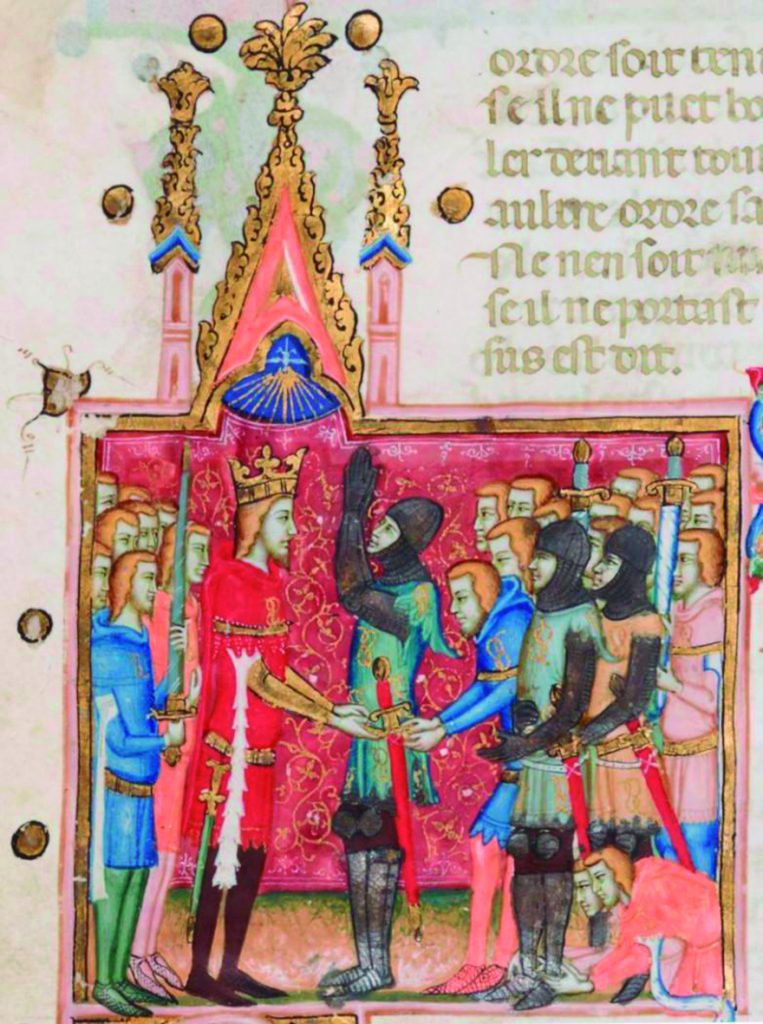 ordre soit ten
se il ne puet bo
ler deuant tou
aultre ordre sa
si le nen soit
se il ne portast
sus est dit.